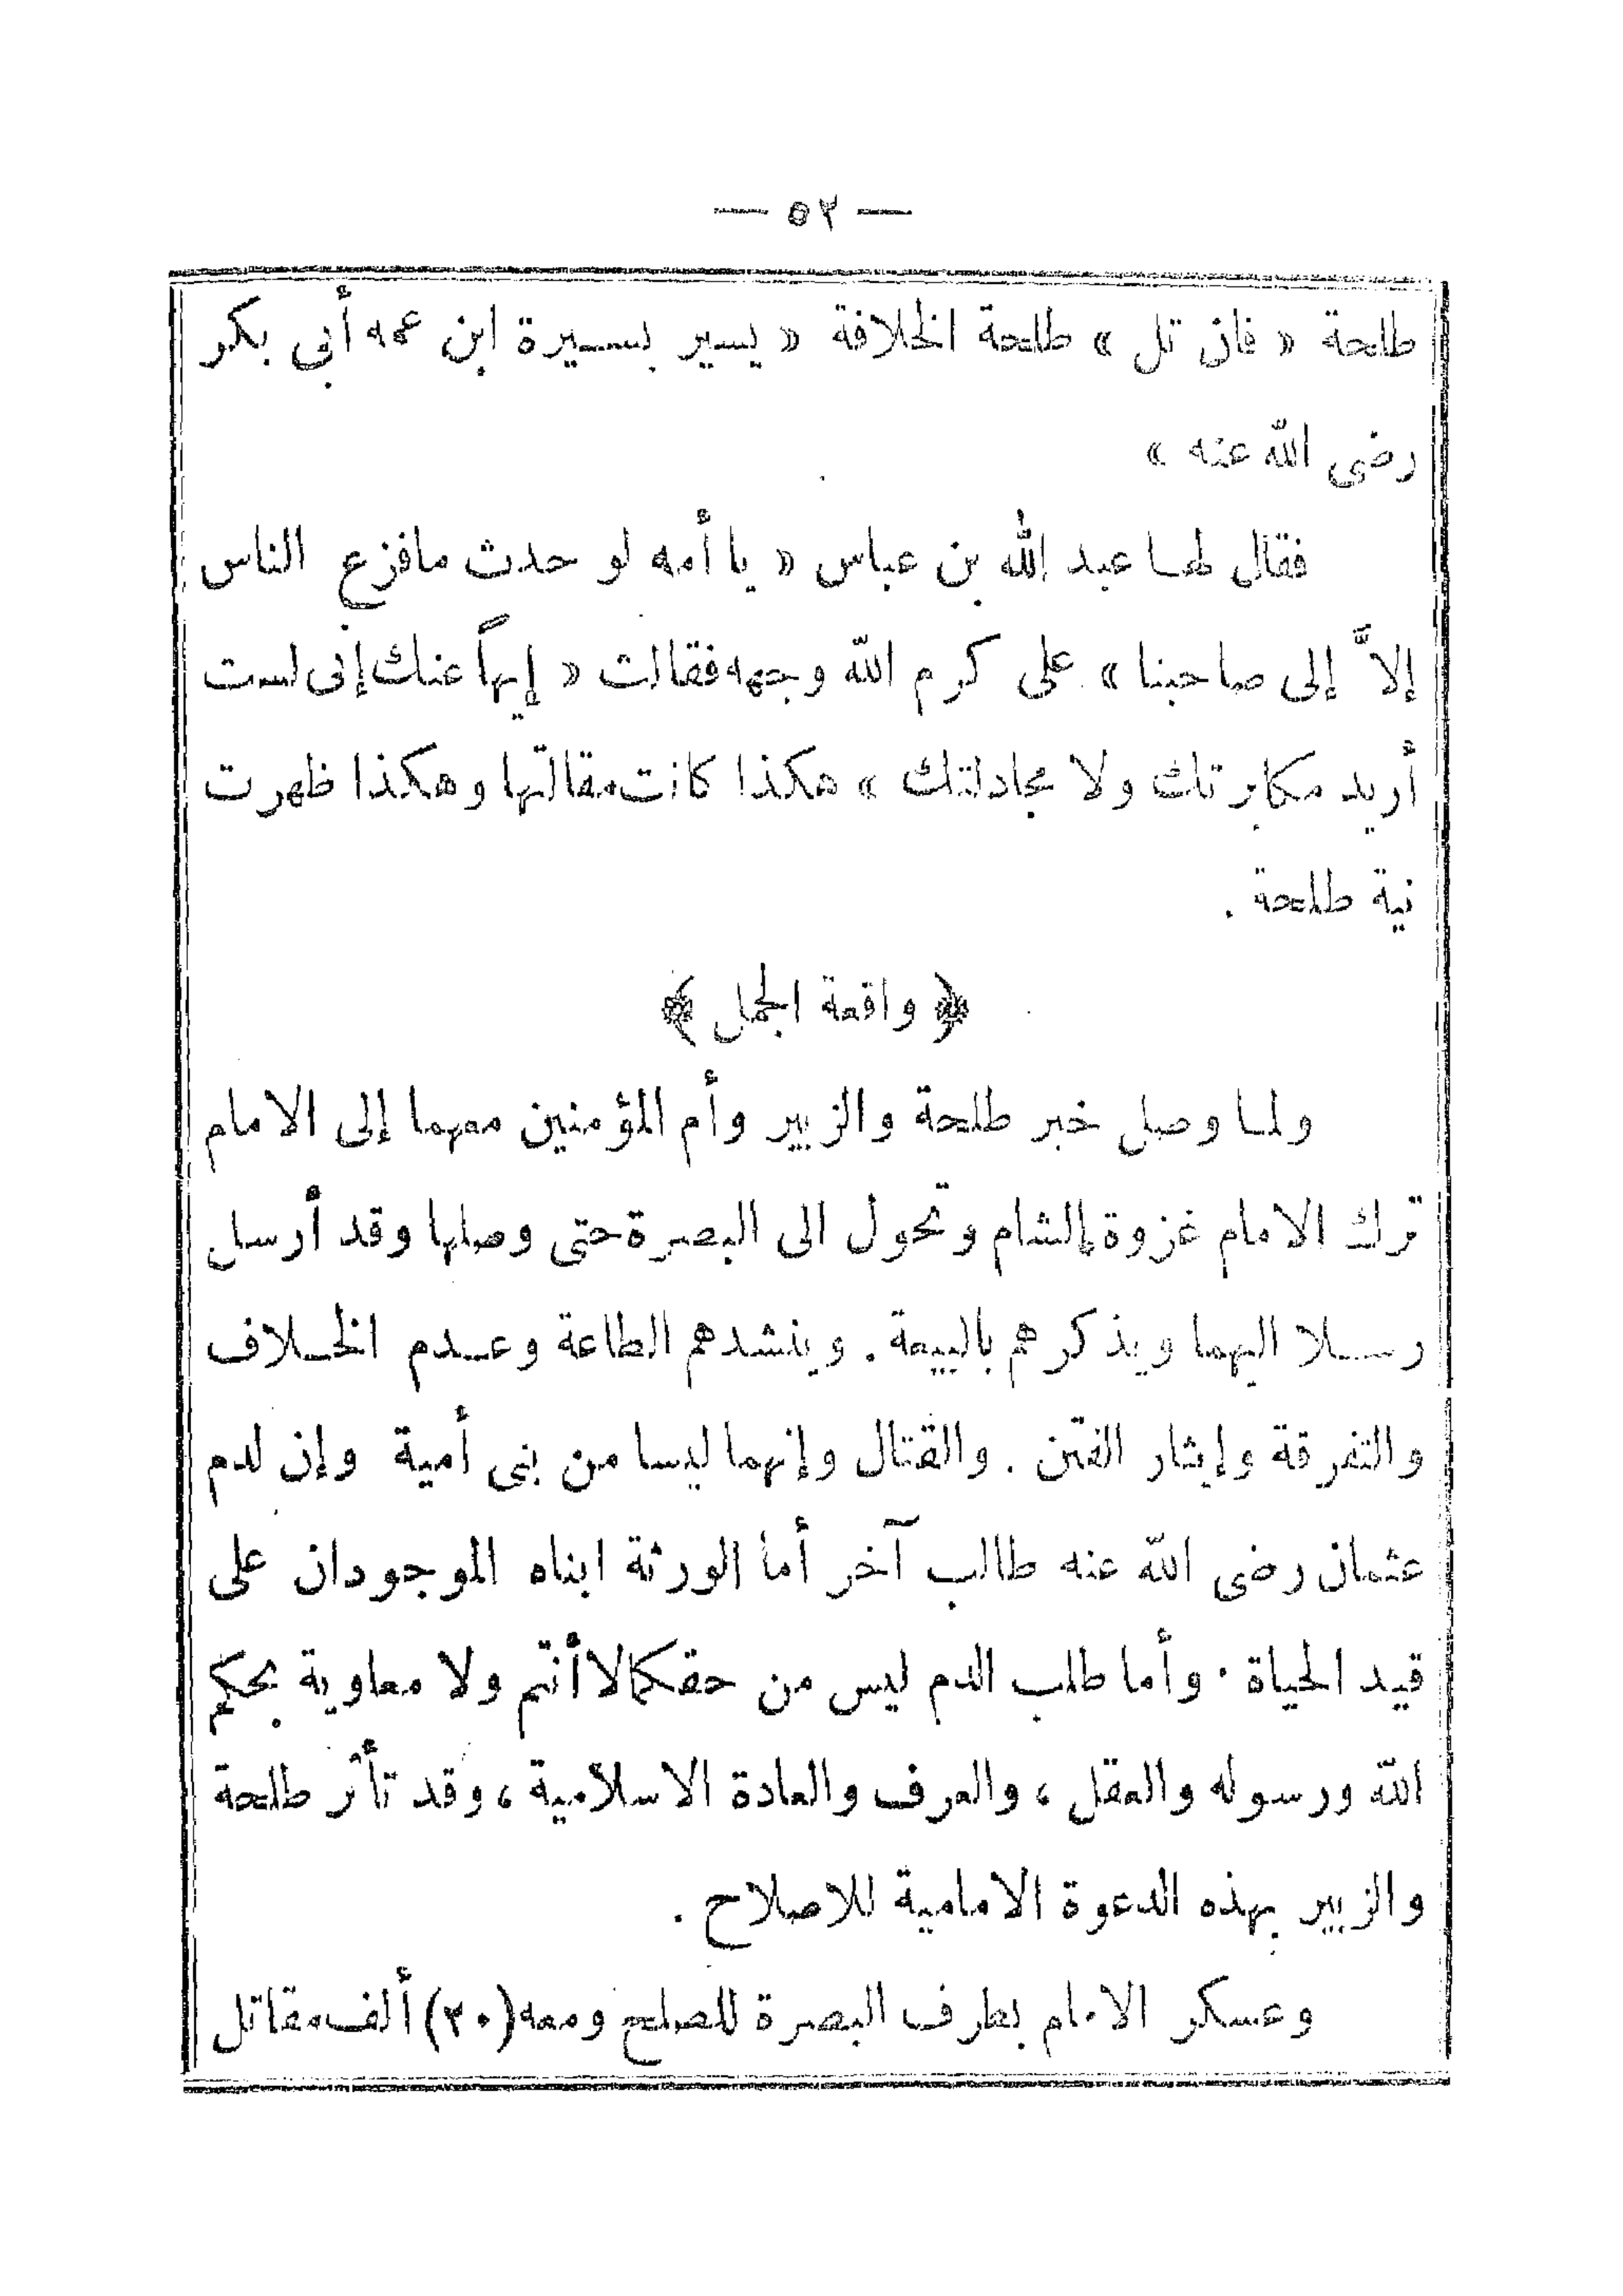 — ٥٢ —
طلحة « فان تل » طلحة الخلافة « يسير بسيرة ابن عمه أبي بكر
رضى الله عنه »
فقال لها عبد الله بن عباس « يا أمه لو حدث مافزع الناس
إلاَّ إلى صاحبنا » على كرم الله وجهه فقالت « إيهاً عنك إنى لست
أريد مكابرتك ولا مجادلتك » هكذا كانت مقالتها وهكذا ظهرت
نية طلحة .
﴿ واقعة الجمل ﴾
ولما وصل خبر طلحة والزبير وأم المؤمنين معهما إلى الامام
ترك الامام غزوة الشام وتحول الى البصرة حتى وصلها وقد أرسل
رسلا اليهما ويذكرهم بالبيعة . وينشدهم الطاعة وعدم الخلاف
والتفرقة وإيثار الفتن . والقتال وإنهما ليسا من بنى أمية وإن لدم
عثمان رضى الله عنه طالب آخر أما الورثة ابناه الموجودان على
قيد الحياة . وأما طلب الدم ليس من حقكما لا أنتم ولا معاوية بحكم
الله ورسوله والعقل ، والعرف والعادة الاسلامية ، وقد تأثر طلحة
والزبير بهذه الدعوة الامامية للاصلاح .
وعسكر الامام بطرف البصرة للصلح ومعه (٢٠) ألف مقاتل